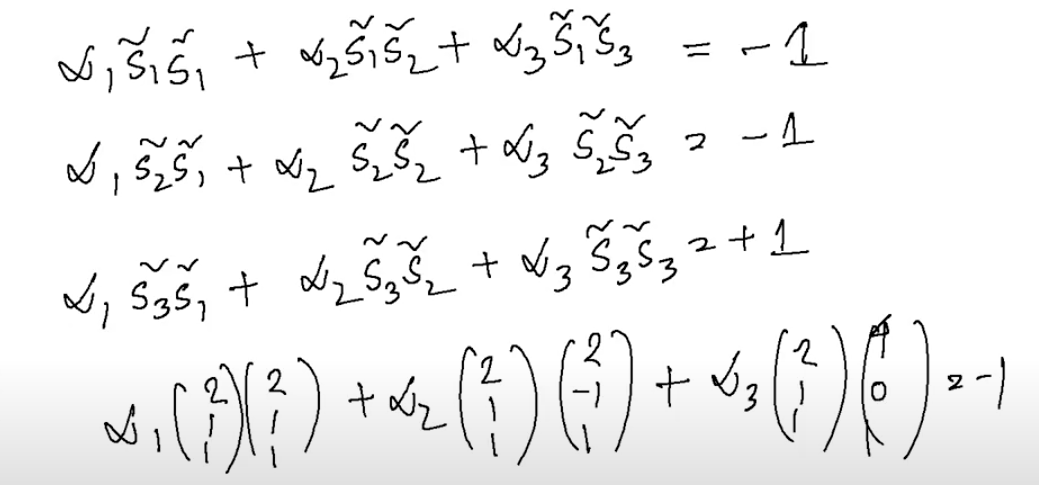 α₁ s̃₁ s̃₁ + α₂ s̃₁ s̃₂ + α₃ s̃₁ s̃₃ = -1
α₁ s̃₂ s̃₁ + α₂ s̃₂ s̃₂ + α₃ s̃₂ s̃₃ = -1
α₁ s̃₃ s̃₁ + α₂ s̃₃ s̃₂ + α₃ s̃₃ s̃₃ = +1
α₁ (2 1 1) (2 1 1) + α₂ (2 1 1) (2 -1 1) + α₃ (2 1 1) (4 0 1) = -1